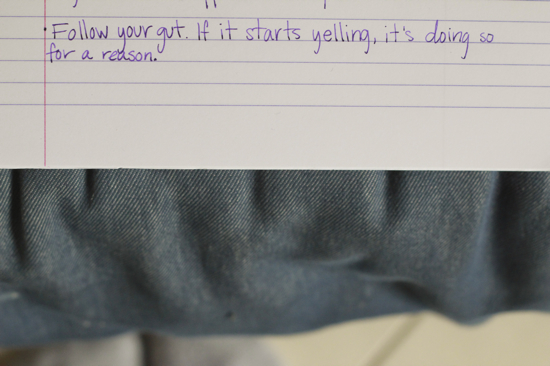 · Follow your gut. If it starts yelling, it's doing so
for a reason.